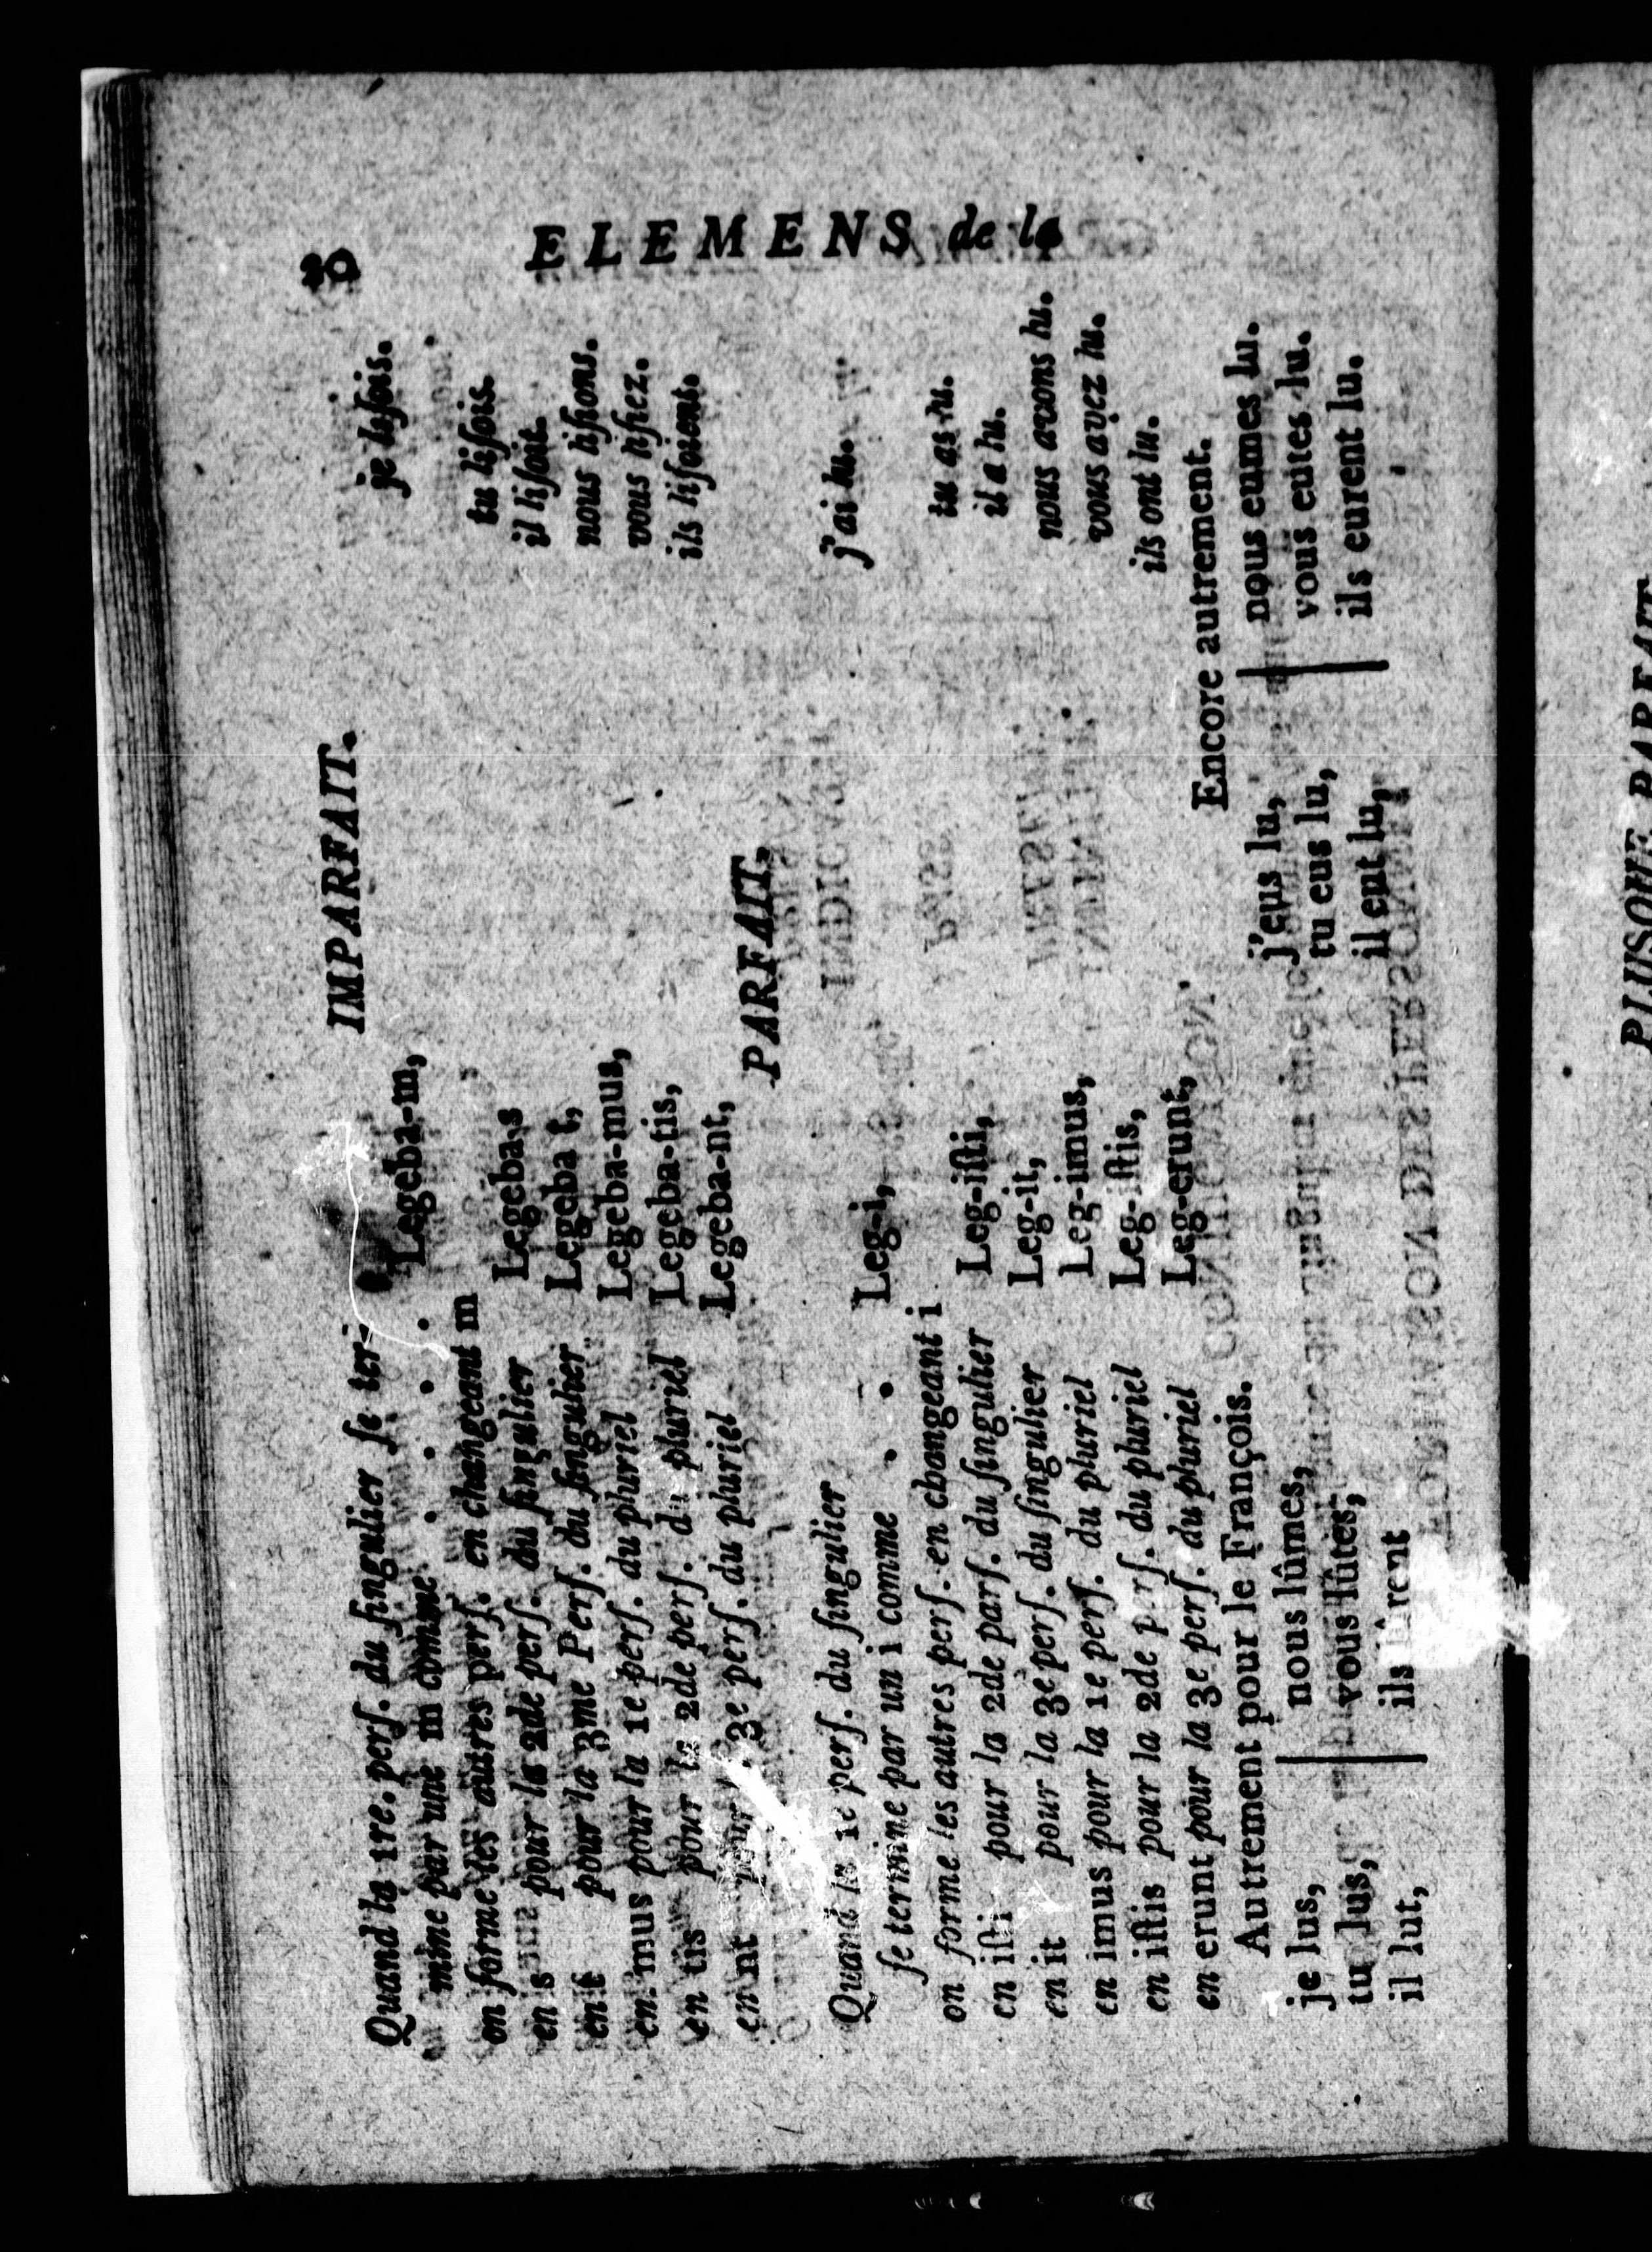 20
ELEMENS de la
IMPARFAIT.
Quand la 1re. perſ. du ſingulier ſe ter-
mine par une m comme . . . . . Legeba-m, je liſois.
on forme les autres perſ. en changeant m
en s pour la 2de perſ. du ſingulier Legeba-s tu liſois.
en t pour la 3me Perſ. du ſingulier Legeba t, il liſoit.
en mus pour la 1e perſ. du pluriel Legeba-mus, nous liſions.
en tis pour la 2de perſ. du pluriel Legeba-tis, vous liſiez.
en nt pour la 3e perſ. du pluriel Legeba-nt, ils liſoient.
PARFAIT.
Quand la 1e perſ. du ſingulier
ſe termine par un i comme . . Leg-i, j'ai lu.
on forme les autres perſ. en changeant i
en iſti pour la 2de parſ. du ſingulier Leg-iſti, tu as lu.
en it pour la 3e perſ. du ſingulier Leg-it, il a lu.
en imus pour la 1e perſ. du pluriel Leg-imus, nous avons lu.
en iſtis pour la 2de perſ. du pluriel Leg-iſtis, vous avez lu.
en erunt pour la 3e perſ. du pluriel Leg-erunt, ils ont lu.
Autrement pour le François. Encore autrement.
je lus, | nous lûmes, j'eus lu, | nous eumes lu.
tu lus, | vous lûtes, tu eus lu, | vous eutes lu.
il lut, | ils il eut lu, | ils eurent lu.